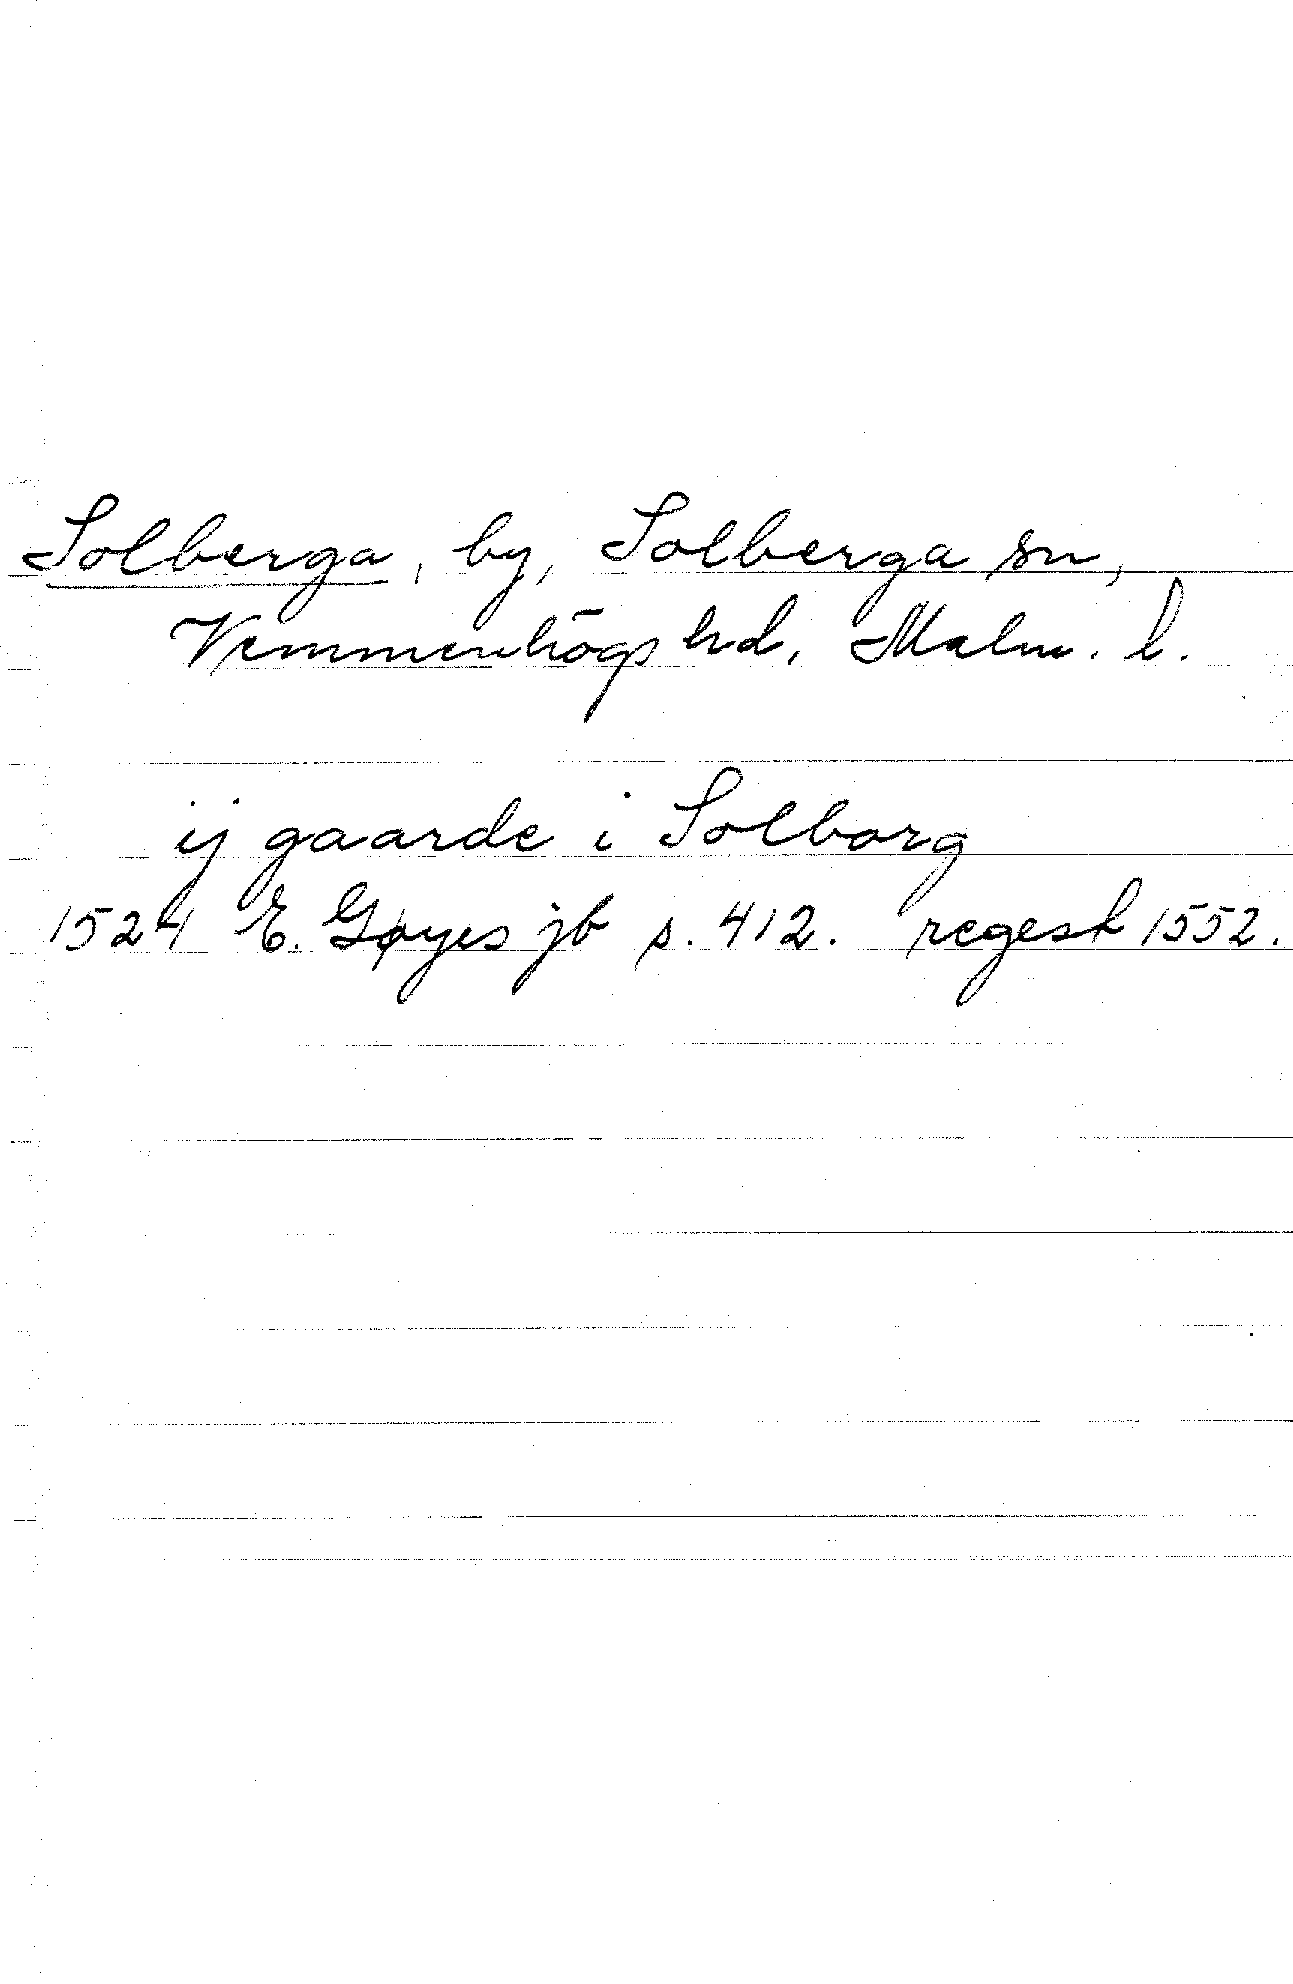 Solberga, by, Solberga sn,
Vemmenhögs hd, Malm. l.
ij gaarde i Solborg
1524 E. Gøyes jb s. 412. regest 1552.